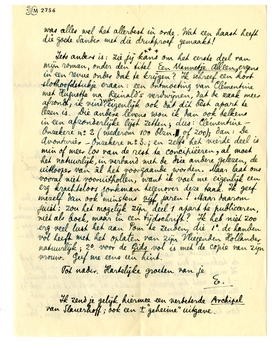 M 2756
was alles wel het allerbest in orde. Wat een haast heeft
die goede Santer met die drukproef gemaakt!
Iets anders is: zie jij kans om het eerste deel van
mijn roman, onder den titel Een Mannetje Alleen, ergens
in een revue onder dak te krijgen? Ik schreef een kort
slothoofdstukje eraan: een ontmoeting van Clementine
met Ruprecht na Reinald's verdwijnen, dat de zaak meer
afrondt; ik vind eigenlijk ook dat dit best apart te
lezen is. Die andere levens wou ik dan ook telkens
in een afzonderlijke zijn zetten; dus: Clementine -
Onzekere no 2 (nedere 100 blzn. of 200); dan: De
Avonturier - Onzekere no 3; en zelfs het vierde deel is
min of meer los van de rest te concipieeren al moet
het natuurlijk, in verband met de drie andere gelezen, de
uitloper van al het voorgaande worden. Maar laat ons
vooral niet vooruithollen, want ik voel me eigenlijk een
erg krachteloos jonkman tegenover deze taak. Ik geef
mezelf dan ook minstens vijf jaren! Maar daarom
juist: zou het mogelijk zijn deel 1 apart te publiceeren,
niet als boek, maar in een tijdschrift? Ik heb niet zoo
erg veel lust het aan Tom te zenden, die 1° de handen
vol heeft met het opeten van zijn Vliegenden Hollander
natuurlijk; 2° voor De Gids vol is met de copie van zijn
vrouw. Geef me eens een hint.
Tot nader. Hartelijke groeten van je
E.
Ik zend je gelijk hiermee een verbeterde Archipel
van Slauerhoff; ook een "geheime" uitgave.